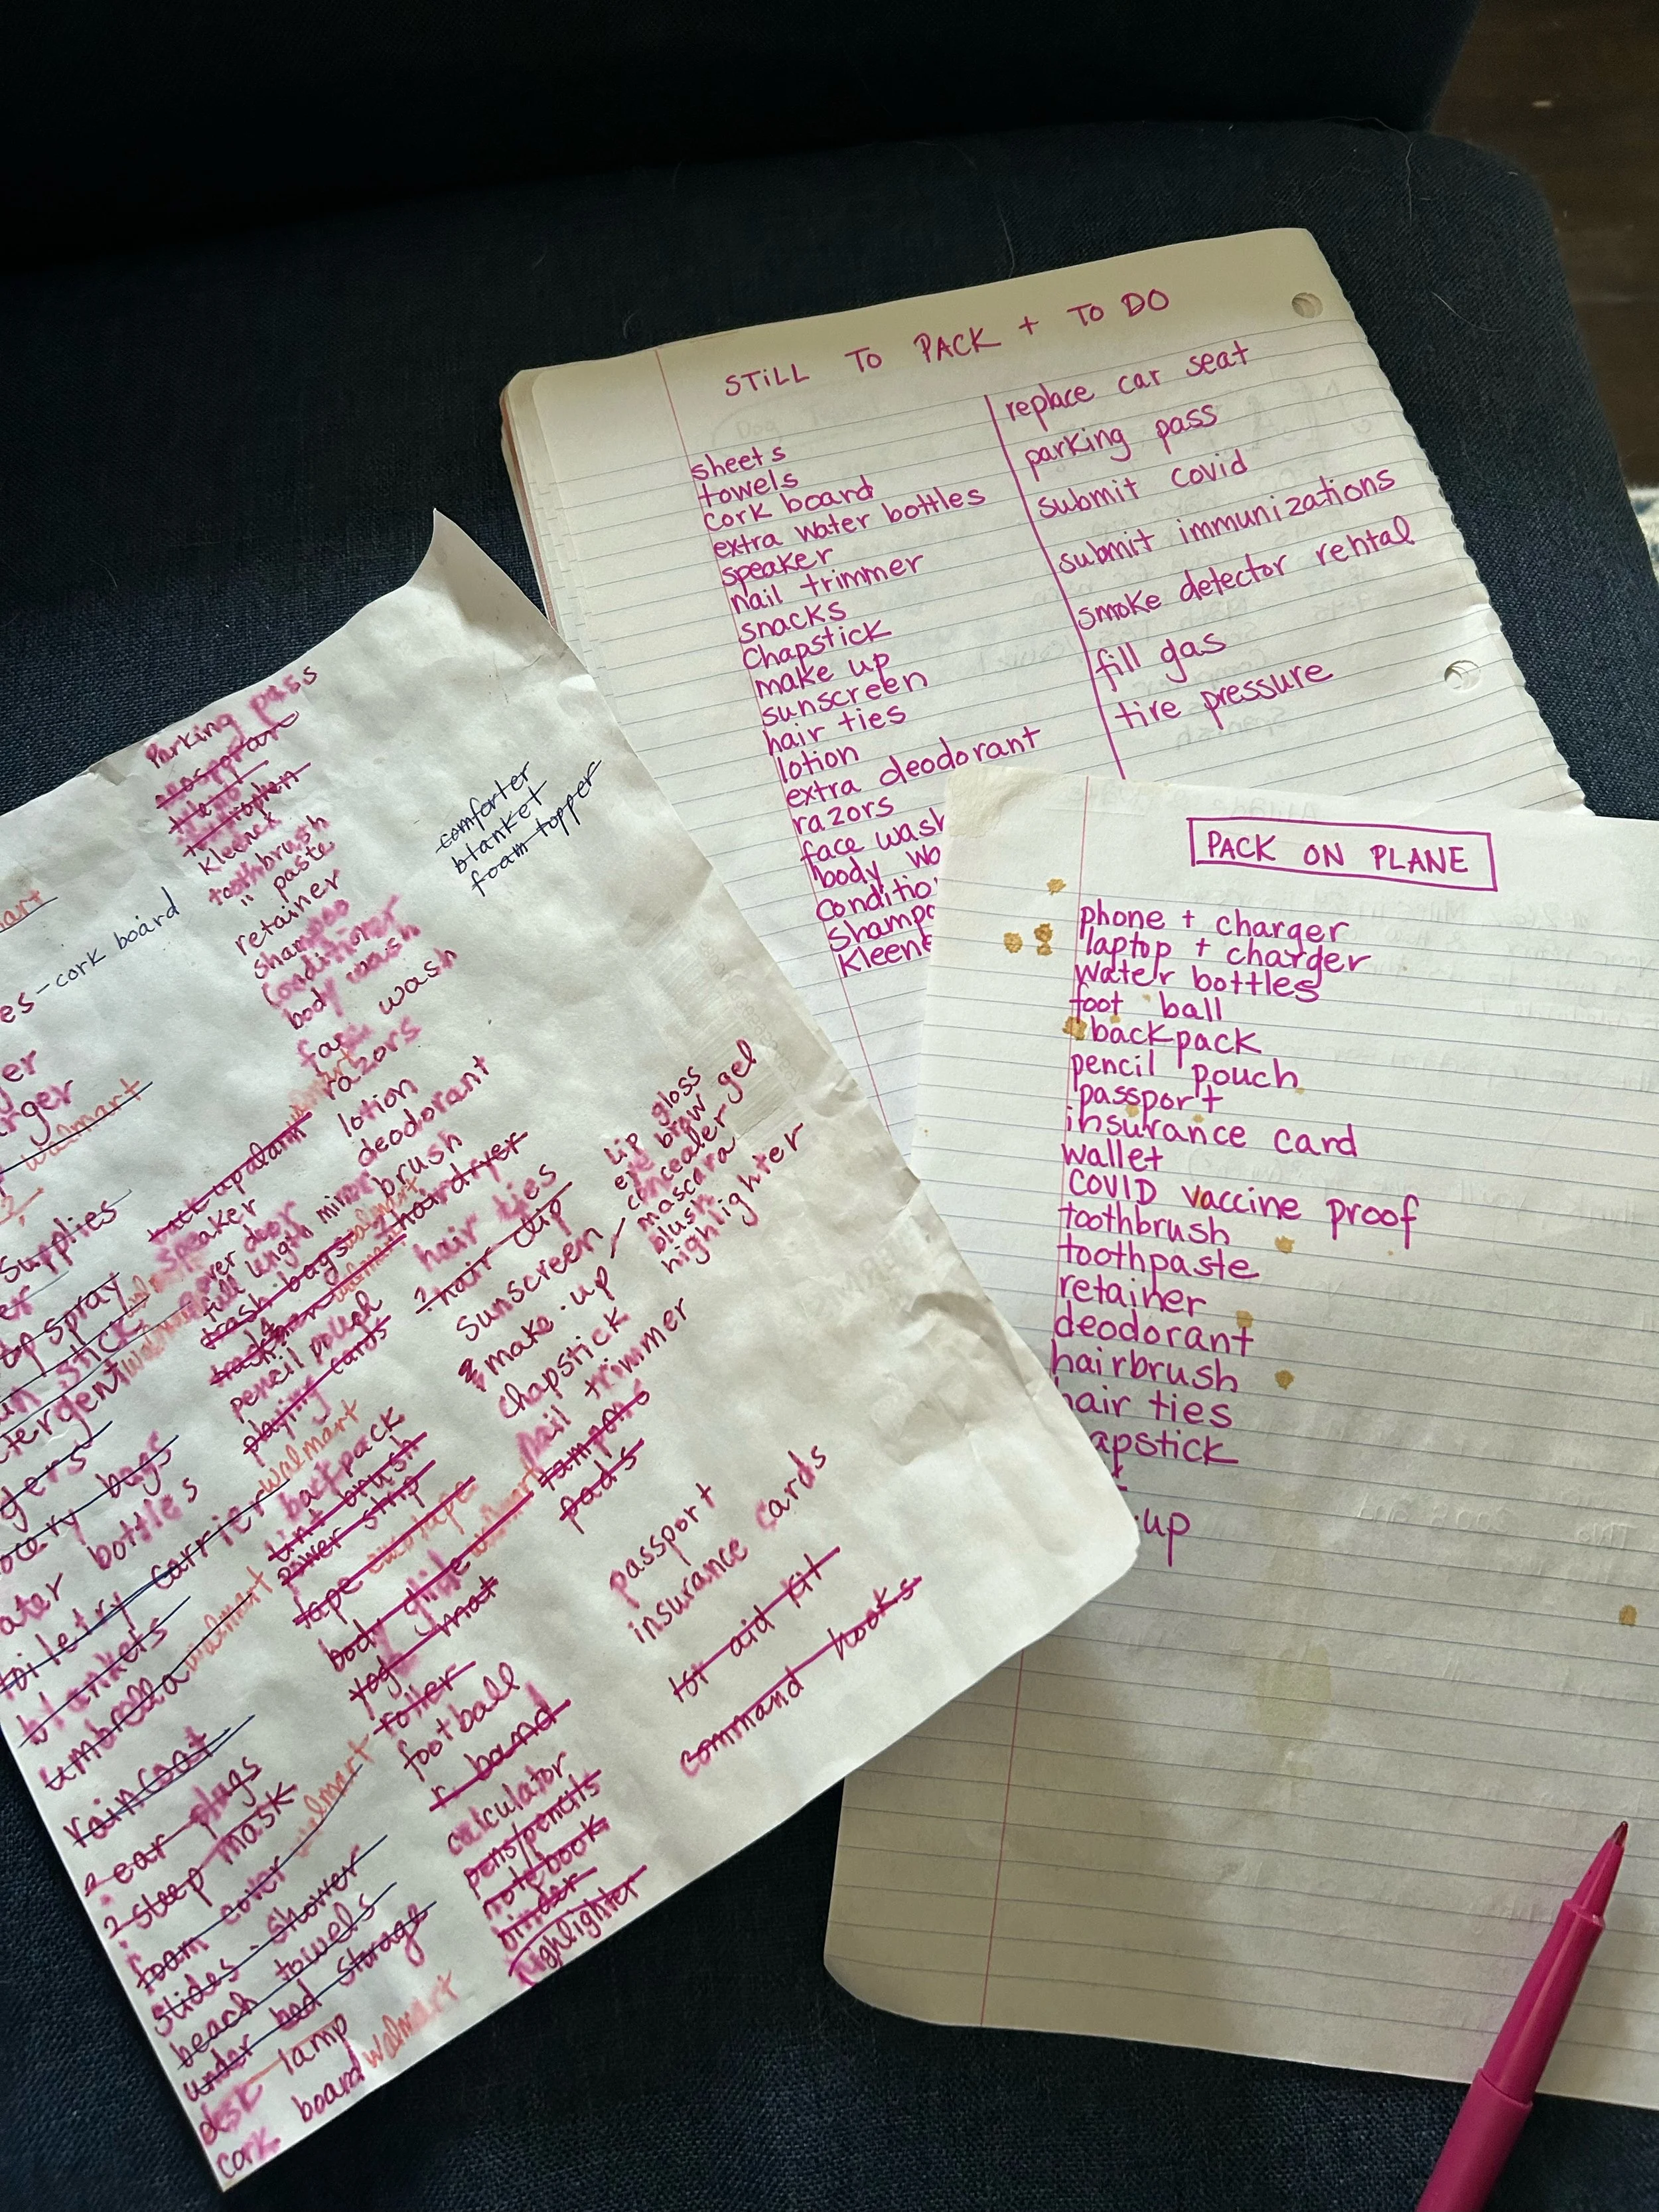 STILL TO PACK + TO DO
sheets
towels
cork board
extra water bottles
speaker
nail trimmer
snacks
Chapstick
make up
sunscreen
hair ties
lotion
extra deodorant
razors
face wash
body wa
Conditio
Shampo
Kleene
replace car seat
parking pass
submit covid
submit immunizations
smoke detector rental
fill gas
tire pressure
PACK ON PLANE
phone + charger
laptop + charger
water bottles
foot ball
backpack
pencil pouch
passport
insurance card
wallet
COVID vaccine proof
toothbrush
toothpaste
retainer
deodorant
hairbrush
hair ties
apstick
up
es - cork board
er
rger
walmart
Supplies
er
op spray
tergent
gers
ocery bags
ater bottles
toiletry carrier walmart
blankets
umbrella walmart
raincoat
2 ear plugs
2 sleep mask
foam cover walmart
slides - shower
beach towels
under bed storage
desk lamp
cork board walmart
Parking pass
Kleenex
toothbrush
" paste
retainer
shampoo
conditioner
body wash
face wash
razors
lotion
deodorant
brush
hairdryer
hair ties
? hair clip
sunscreen
make-up
chapstick
nail trimmer
tampons
pads
back up alarm
speaker
over door
full length mirror
trash bags
pencil pouch
playing cards
backpack
lint brush
power strip
tape
body glide walmart
yoga mat
roller
football
r band
calculator
pens/pencils
notebook
binder
highlighter
comforter
blanket
foam topper
Lip gloss
eye brow gel
concealer
mascara
blush
highlighter
passport
insurance cards
1st aid kit
command hooks